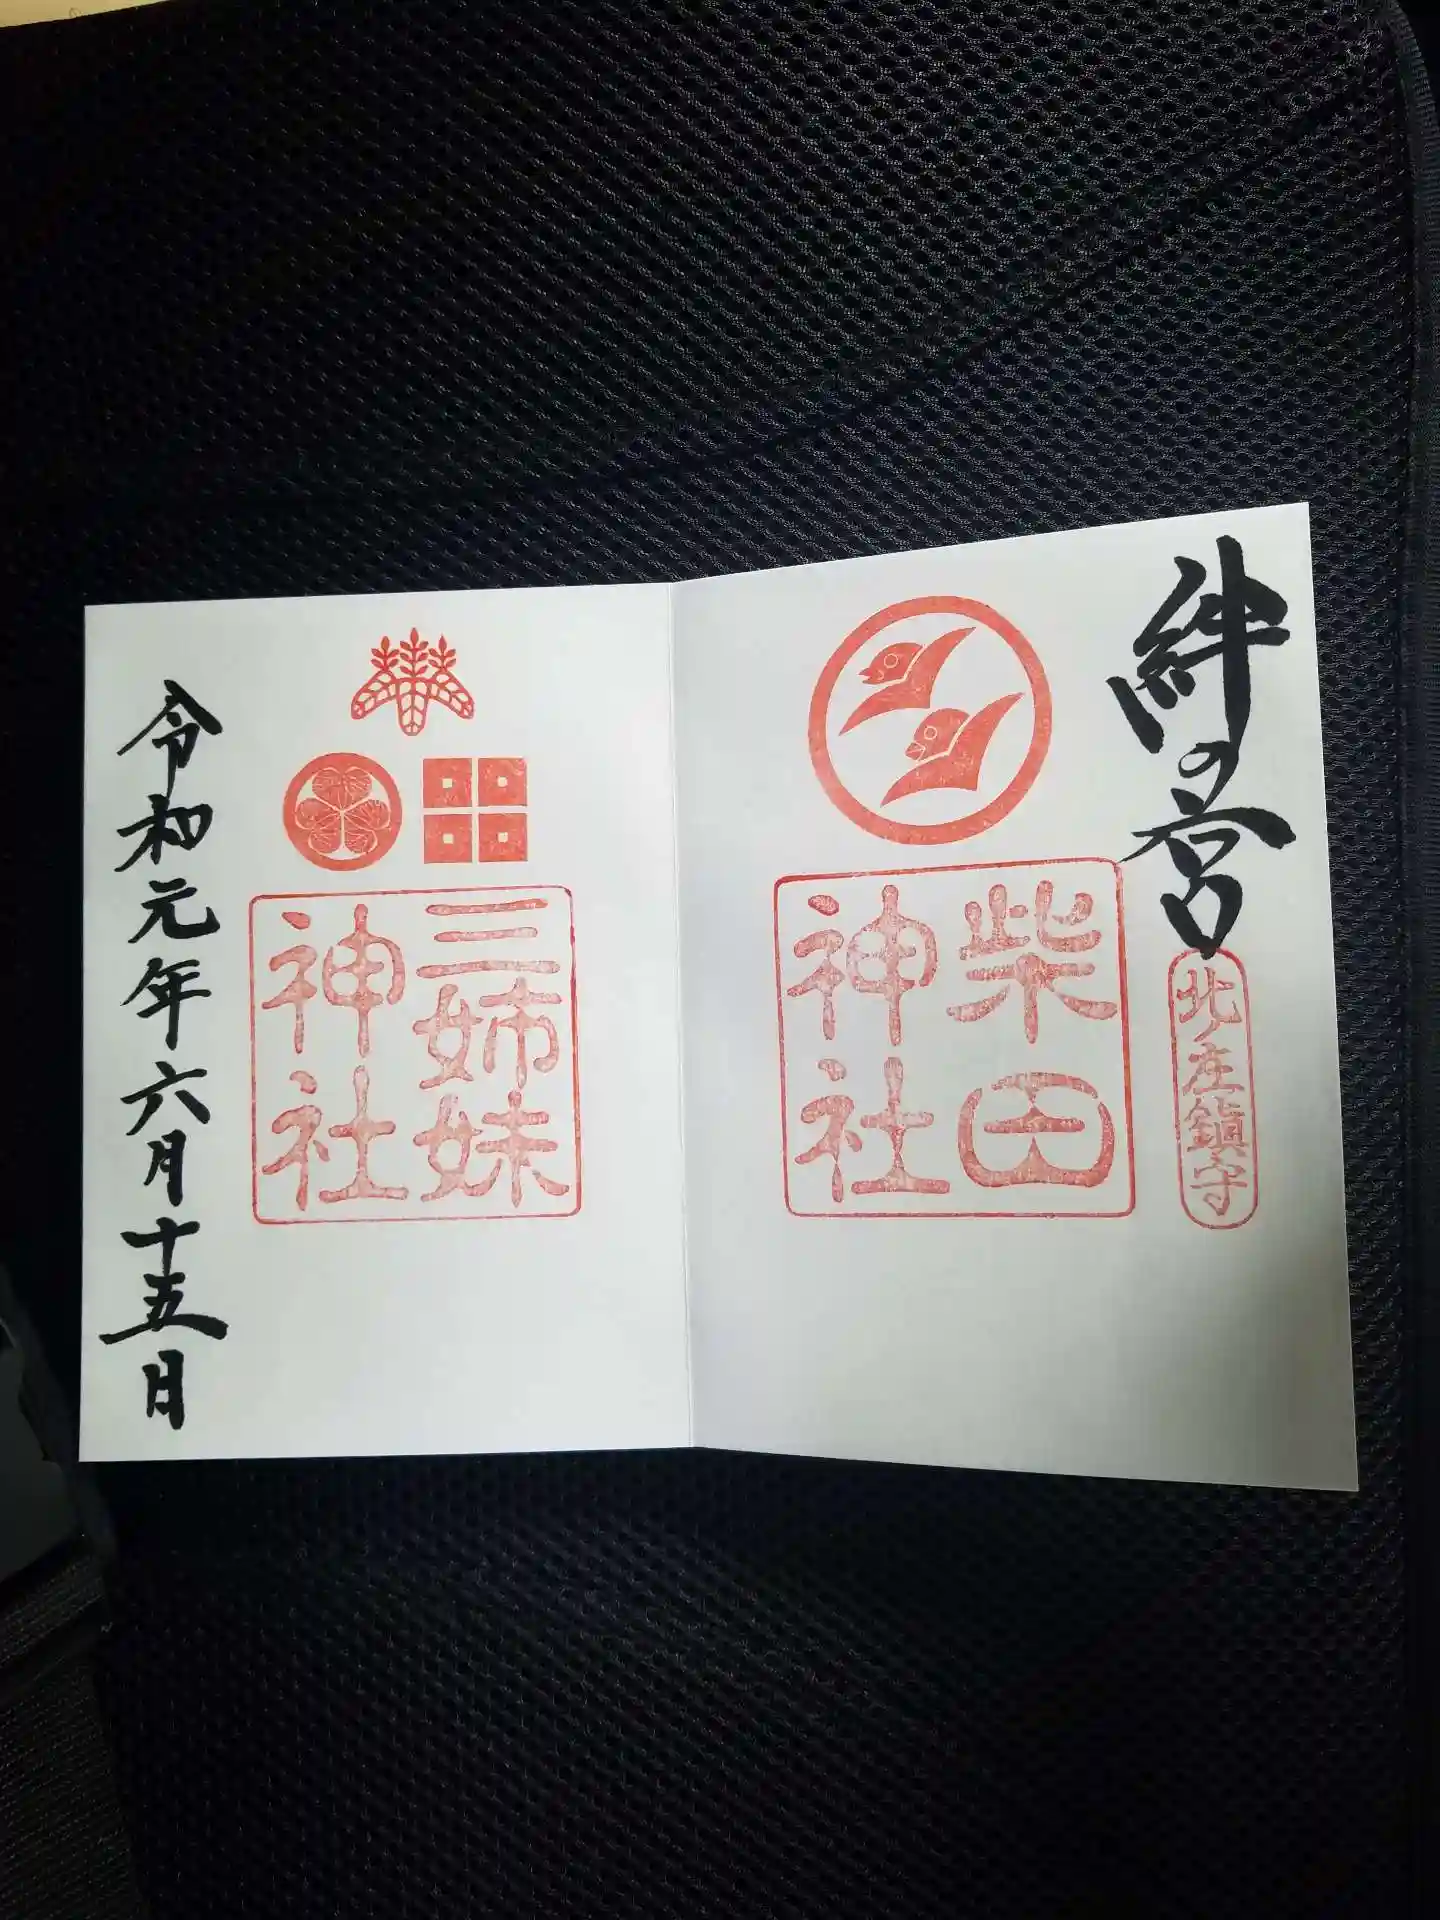 絆の宮
北ノ庄鎮守
柴田
神社
三姉妹
神社
令和元年六月十五日